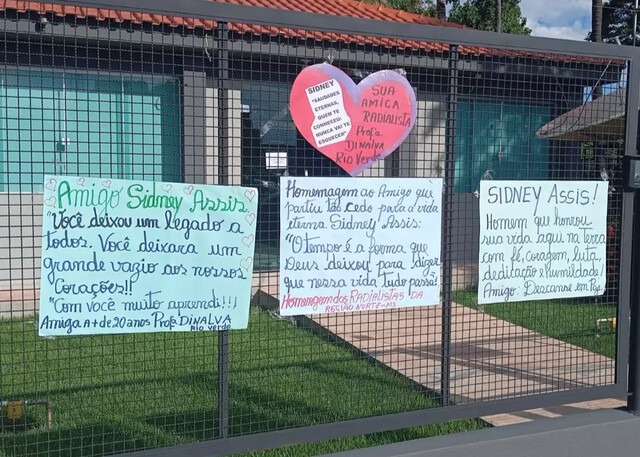 SIDNEY
"SAUDADES
ETERNAS,
QUEM TE
CONHECEU:
NUNCA VAI TE
ESQUECER"
SUA
AMIGA
RADIALISTA
Profª
DINALVA
Rio Verde
Amigo Sidney Assis.
"Você deixou um legado a
todos. Você deixara um
grande vazio aos nossos
Corações!!
"Com você muito aprendi!!!
Amiga A + de 20 anos Profª DINALVA
Rio Verde
Homenagem ao Amigo que
partiu tão cedo para a vida
eterna Sidney Assis:
"O tempo é a forma que
Deus deixou para dizer
que nessa vida tudo passa!
Homenagem dos RADIALISTAS DA
REGIÃO NORTE-MS
SIDNEY ASSIS!
Homem que honrou
sua vida aqui na Terra
com fé, coragem, luta,
dedicação e humildade!
Amigo: Descanse em Paz